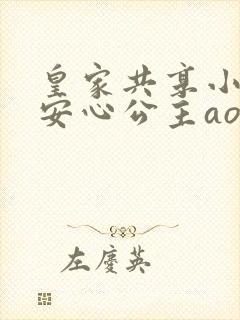 皇家共享小
安心公主ao
左廖英